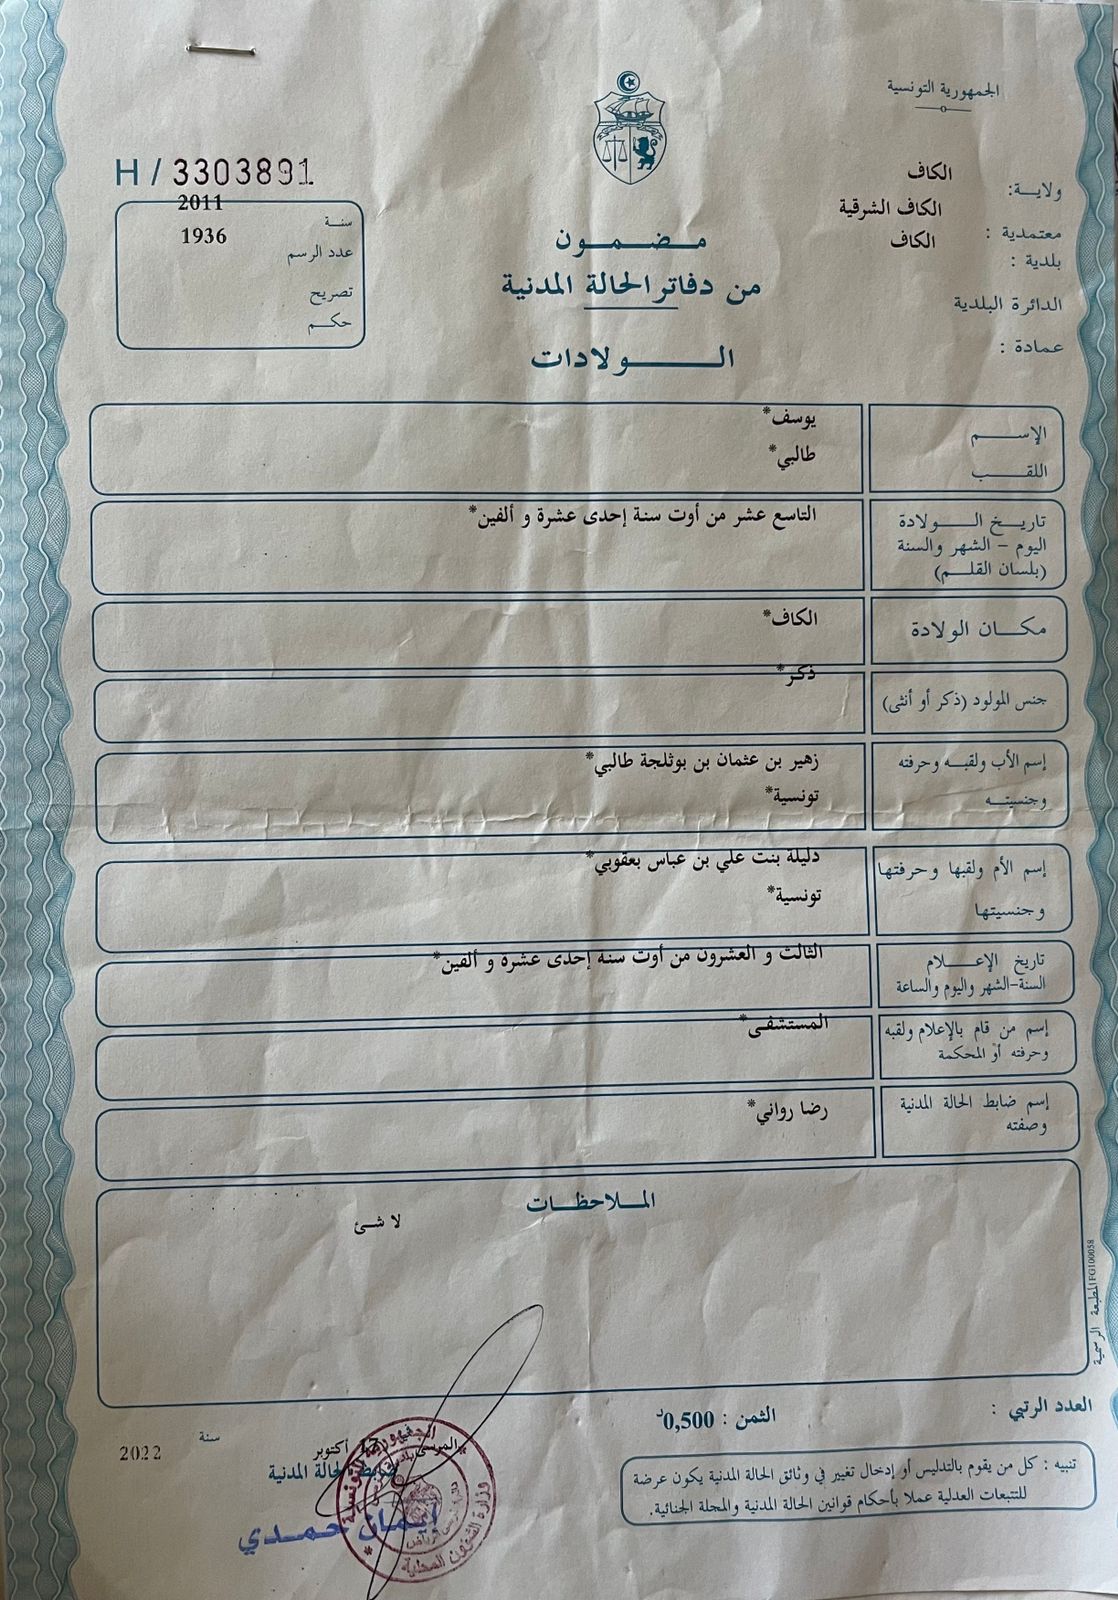 الجمهورية التونسية
H / 3303891
ولايـــة: الكاف
معتمدية : الكاف الشرقية
بلدية : الكاف
الدائرة البلدية
عمادة :
سنـــة 2011
عدد الرسم 1936
تصريح
حكـــم
مـــضـــمـــون
من دفاتر الحالة المدنية
الـــــولادات
الإســـم يوسف*
اللقـــب طالبي*
تاريـــخ الـــــولادة التاسع عشر من أوت سنة إحدى عشرة و ألفين*
اليوم – الشهر والسنة
(بلسان القلـــم)
مكـــان الولادة الكاف*
جنس المولود (ذكر أو أنثى) ذكر*
إسم الأب ولقبـــه وحرفته زهير بن عثمان بن بوثلجة طالبي*
وجنسيتـــه تونسية*
إسم الأم ولقبها وحرفتها دليلة بنت علي بن عباس بعقوبي*
وجنسيتها تونسية*
تاريخ الإعـــــلام الثالث و العشرون من أوت سنة إحدى عشرة و ألفين*
السنة-الشهر واليوم والساعة
إسم من قام بالإعلام ولقبه المستشفى*
وحرفته أو المحكمة
إسم ضابط الحالة المدنية رضا رواني*
وصفته
المـــلاحظـــات
لا شئ
المطبعة الرسمية IFG100058
العدد الرتبي :
الثمن : 0,500د
تنبيه : كل من يقوم بالتدليس أو إدخال تغيير في وثائق الحالة المدنية يكون عرضة
للتتبعات العدلية عملا بأحكام قوانين الحالة المدنية والمجلة الجنائية.
المرسى 17 أكتوبر سنة 2022
ضابط الحالة المدنية
إيمان حمدي
الجمهورية التونسية
وزارة الشؤون المحلية